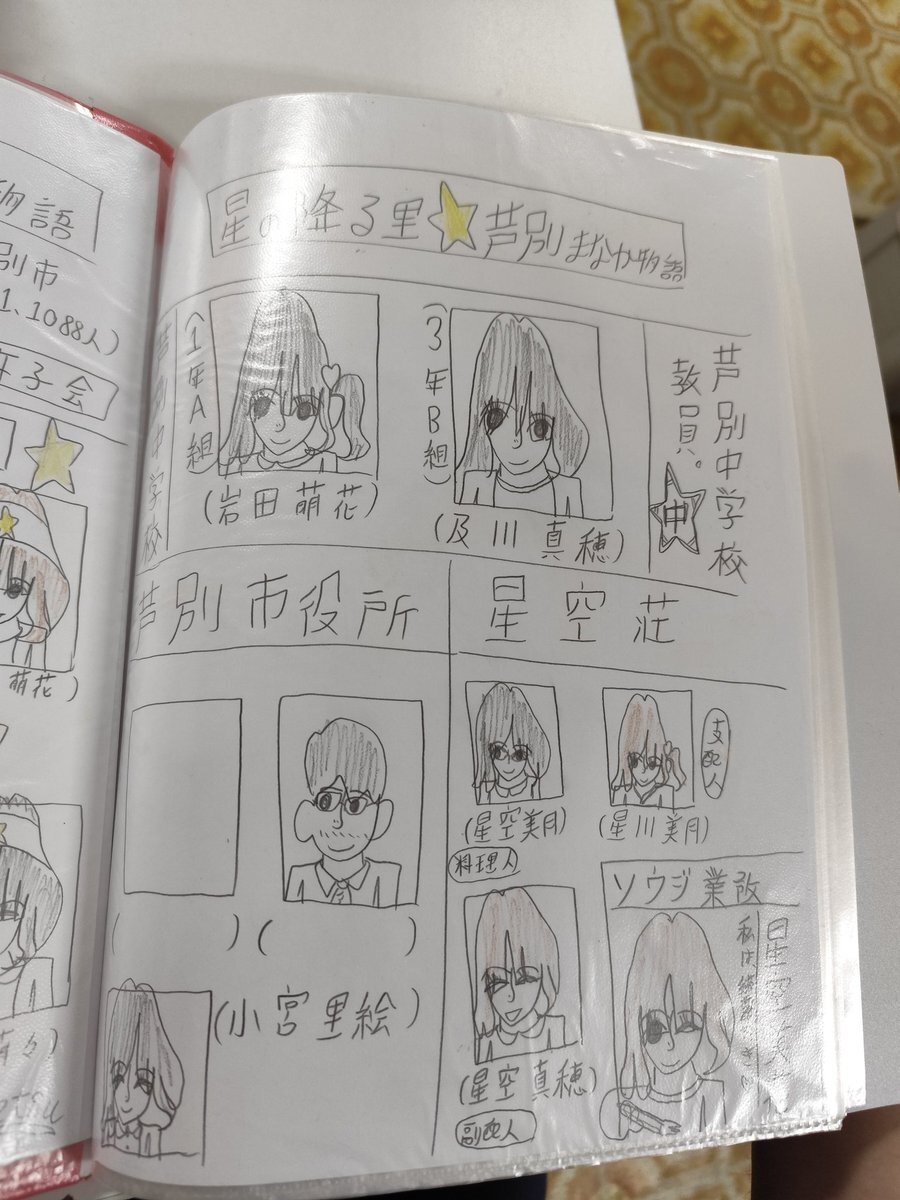 物語
別市
1、1088人)
年子会
萌花)
星の降る里 芦別まなか物語
芦別中学校
(1年A組)
(岩田萌花)
(3年B組)
(及川真穂)
芦別中学校
教員。
中
芦別市役所
星空荘
( )
( )
(小宮里絵)
(星空美月)
料理人
(星川美月)
支配人
(星空真穂)
副配人
ソウジ業改
星空
私は